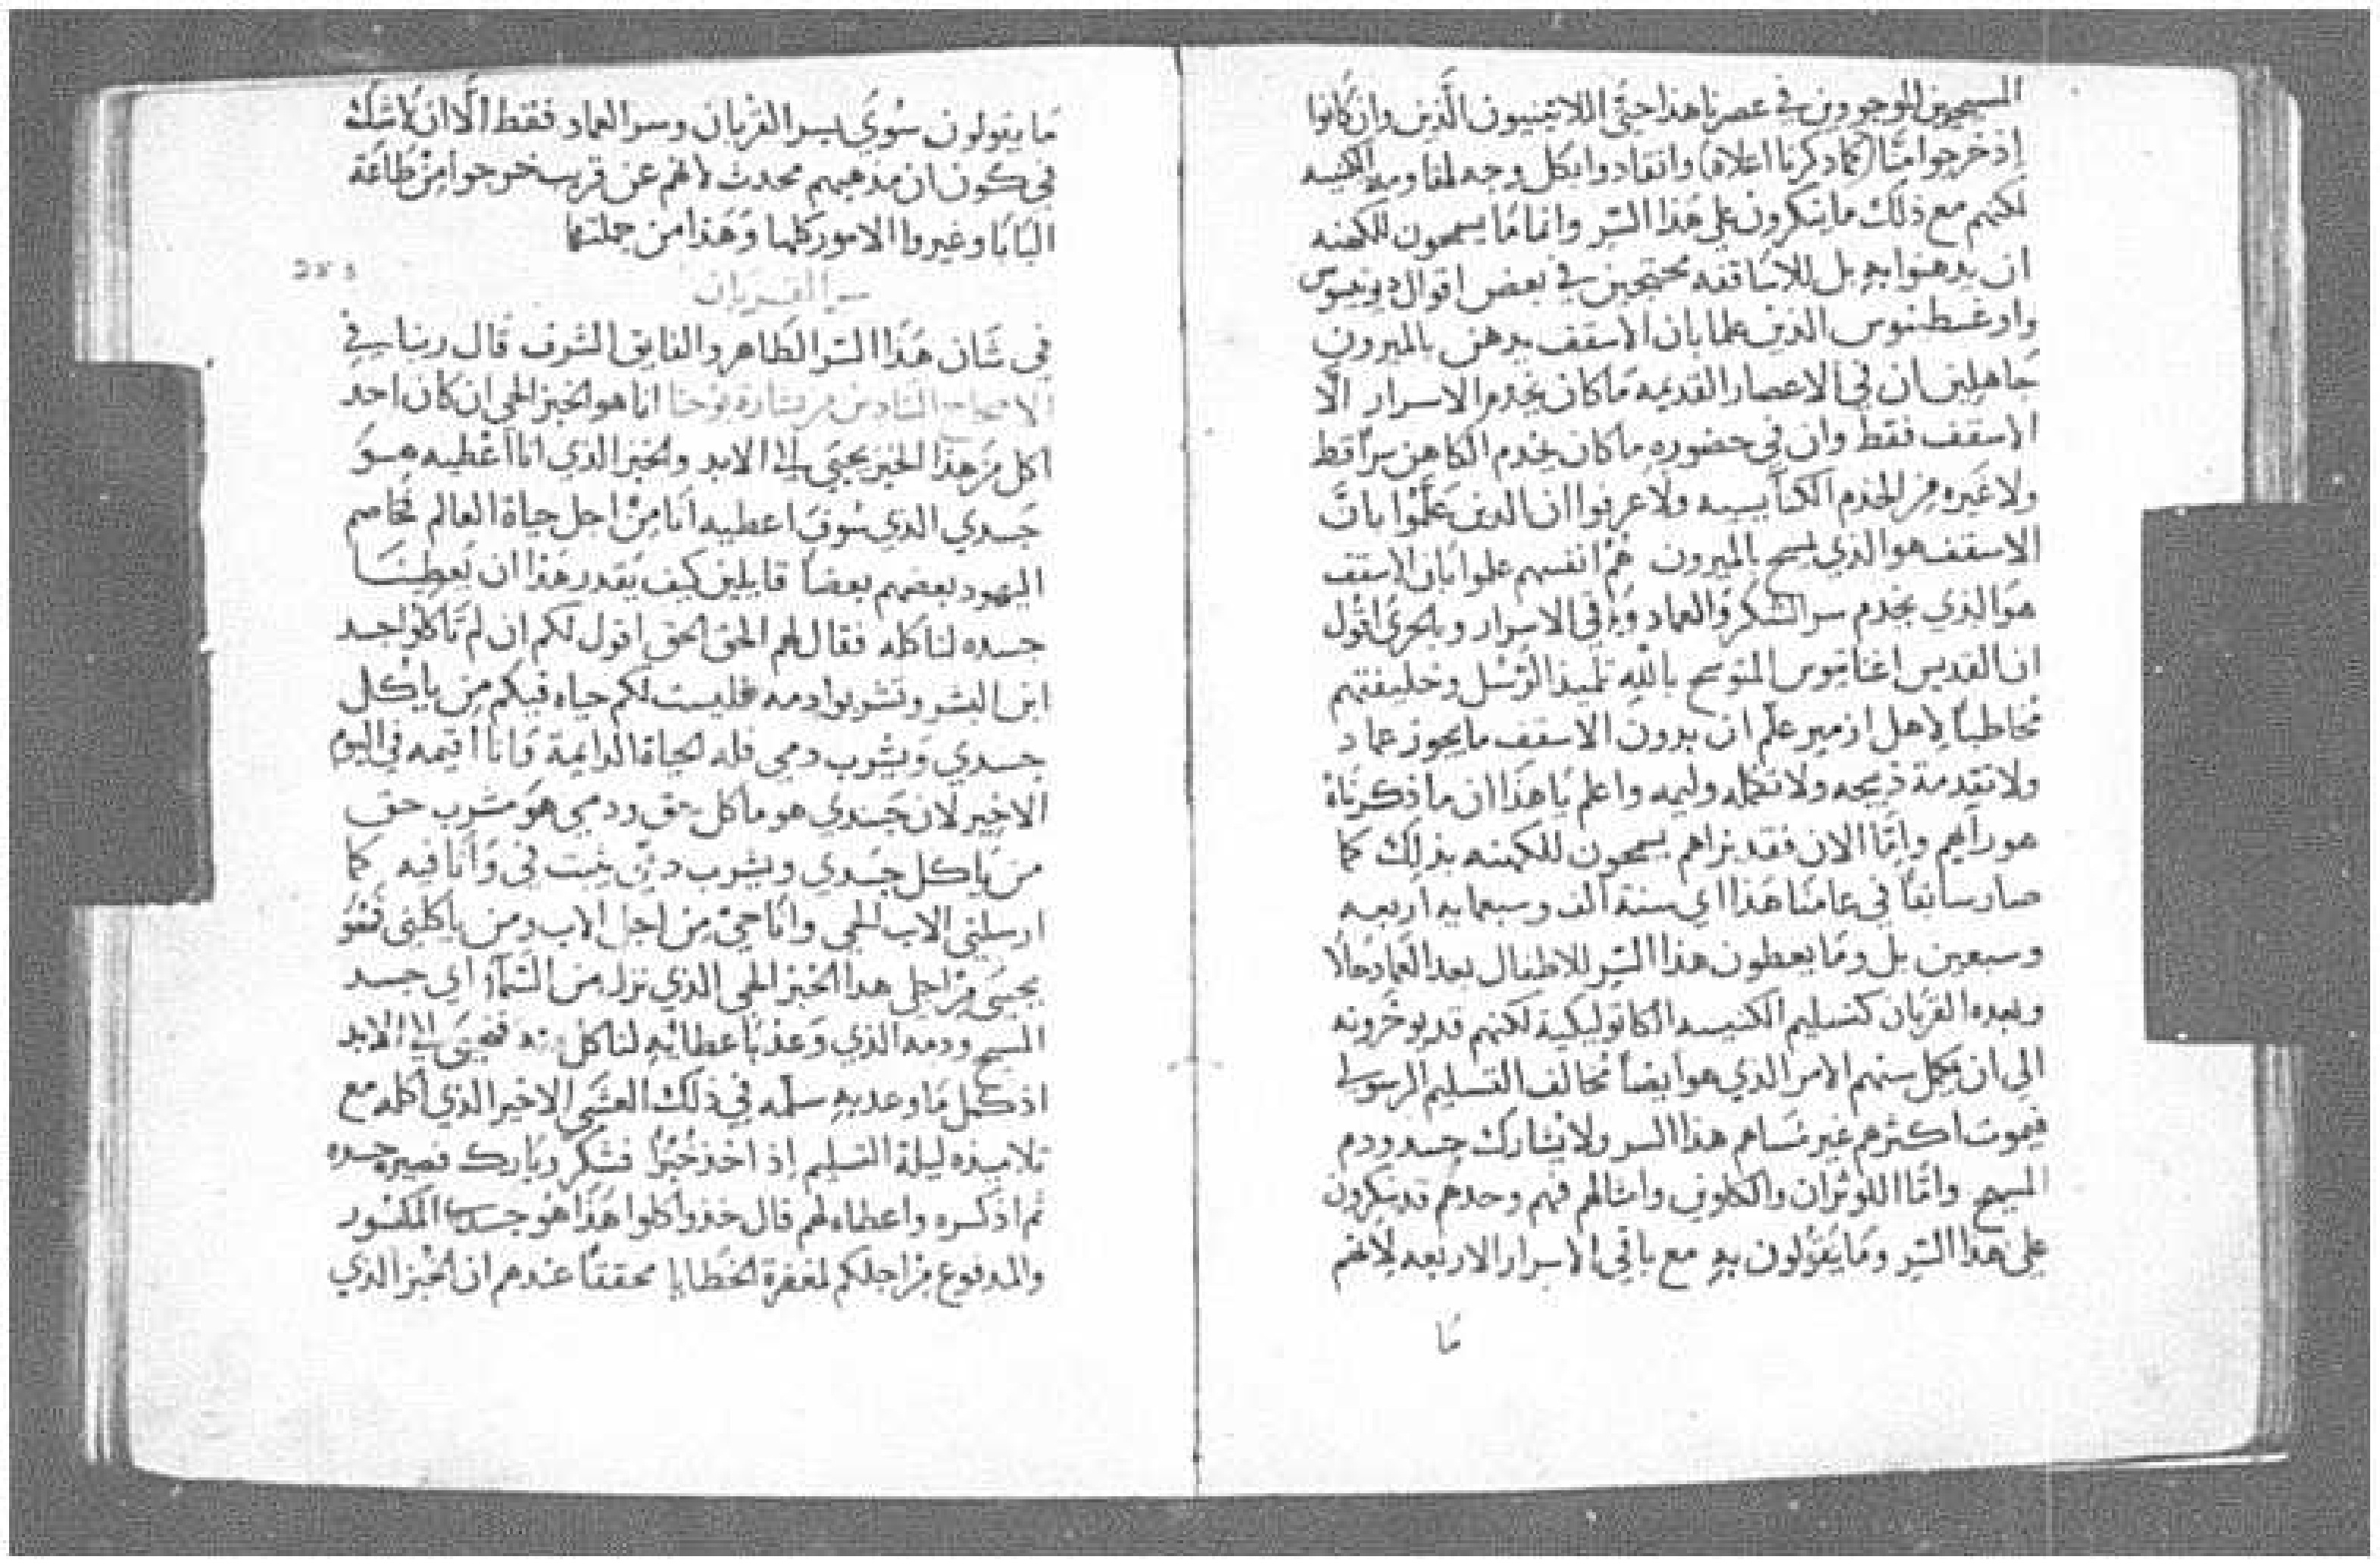 المسيحيين الموجودين في عصرنا هذا حتى اللاتينيون الذين وان كانوا
إذ خرجوا منا (كما ذكرنا اعلاه) وانقادوا بكل وجه
لكنهم مع ذلك ما ينكرون على هذا السر وانما ما يسمحون للكهنه
ان يدهنوا به بل للاساقفه محتجين في بعض اقوال ديونيسيوس
واوغسطينوس الذين علما بان الاسقف يدهن بالميرون
جاهلين ان في الاعصار القديمه ما كان يخدم الاسرار الا
الاسقف فقط وان في حضوره ما كان يخدم الكاهن سراً قط
ولا غيره من الخدم الكنايسيه ولا عرفوا ان الذين علّموا بان
الاسقف هو الذي يسمح بالميرون هُم انفسهم علموا بان الاسقف
هو الذي يخدم سر الشكر والعماد وباقي الاسرار وبالحري اقول
ان القديس اغناتيوس المتوسح بالله تلميذ الرُسُل وخليفتهم
مخاطباً لاهل ازمير علّم ان بدون الاسقف ما يجوز عماد
ولا تقدمة ذبيحه ولا تكمله وليمه واعلم يا هذا ان ما ذكرناه
هو رايهم وامَّا الان فقد نراهم يسمحون للكهنه بذلك كما
صار سابقاً في عامنا هذا اي سنة الف وسبعمايه اربعه
وسبعين بل وما يعطون هذا السر للاطفال بعد العماد حالا
وبعده القربان كتسليم الكنيسه الكاتوليكية لكنهم قد يوخّرونه
الى ان يكمل سنهم الامر الذي هو ايضاً مخالف التسليم الرسولي
فيموت اكثرهم غير مساهم هذا السر ولا يشارك جسد ودم
المسيح وامَّا اللوثران والكلوني وامثالهم فهم وحدهم قد ينكرون
على هذا السر وما يقولون به مع باقي الاسرار الاربعه لانهم
مَا
ما يقولون سُوَي بسر القربان وسر العماد فقط الَّا ان لا شك
في كون ان مذهبهم محدث لانهم عن قرب خرجوا من طاعة
البابا وغيروا الامور كلها وهذا من جملتها
سر القربان
في شان هذا السر الطاهر والفايق الشرف قال ربنا في
الاصحاح السادس من بشارة يوحنا انا هو الخبز الحي ان كان احد
اكل من هذا الخبز يحيَى الى الابد والخبز الذي انا اعْطيه هو
جسدي الذي سوف اعطيه انا من اجل حياة العالم فخاصم
اليهود بعضهم بعضاً قايلين كيف يقدر هذا ان يعطينا
جسده لناكله فقال لهم الحق الحق اقول لكم ان لم تاكلوا جسد
ابن البشر وتشربوا دمه فليست لكم حياه فيكم من ياكل
جسدي ويشرب دمي فله الحياة الدايمة وانا اقيمه في اليوم
الاخير لان جسدي هو ماكل حق ودمي هو مشرب حق
من ياكل جسدي ويشرب دمي يثبت فيَّ وانا فيه كما
ارسلني الاب الحي وانا حيّ من اجل الاب ومن ياكلني فهو
يحيى من اجلي هذا الخبز الحي الذي نزل من السماء اي جسد
المسيح ودمه الذي وعدنا باعطائه لناكل منه فنحيَى الى الابد
اذ كمل ما وعد به سلّمه في ذلك العشي الاخير الذي اكله مع
تلاميذه ليلة التسليم إذ اخذ خبزاً فشكر وبارك فصيره جسده
ثم اذ كسره واعطاه لهم قال خذوا كلوا هذا هُو جسدي المكسور
والمدفوع من اجلكم لمغفرة الخطايا محققاً عندهم ان الخبز الذي